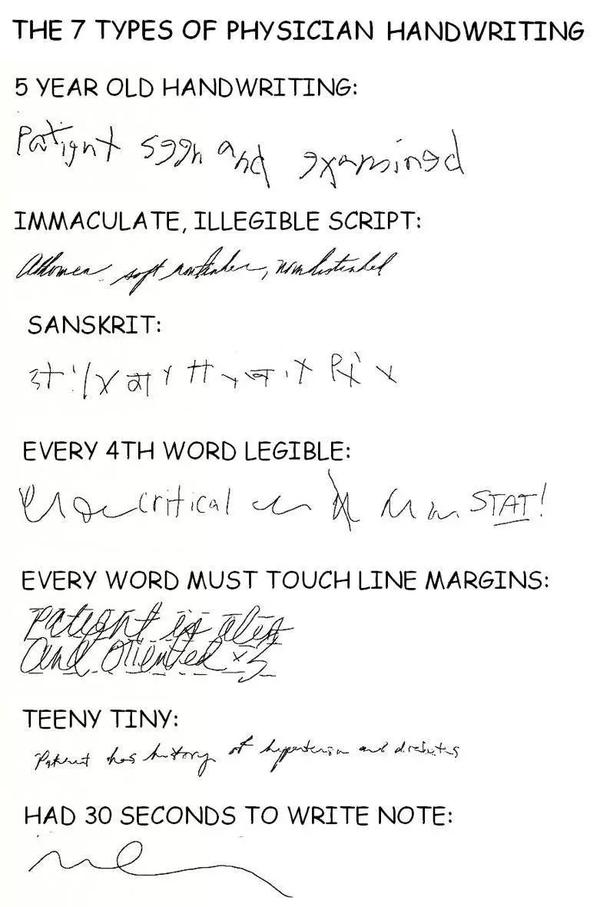 THE 7 TYPES OF PHYSICIAN HANDWRITING
5 YEAR OLD HANDWRITING:
Patient seen and examined
IMMACULATE, ILLEGIBLE SCRIPT:
soft nontender, nondistended
SANSKRIT:
EVERY 4TH WORD LEGIBLE:
critical STAT!
EVERY WORD MUST TOUCH LINE MARGINS:
Patient is alert
and oriented x3
TEENY TINY:
Patient has history of hypertension and diabetes
HAD 30 SECONDS TO WRITE NOTE: